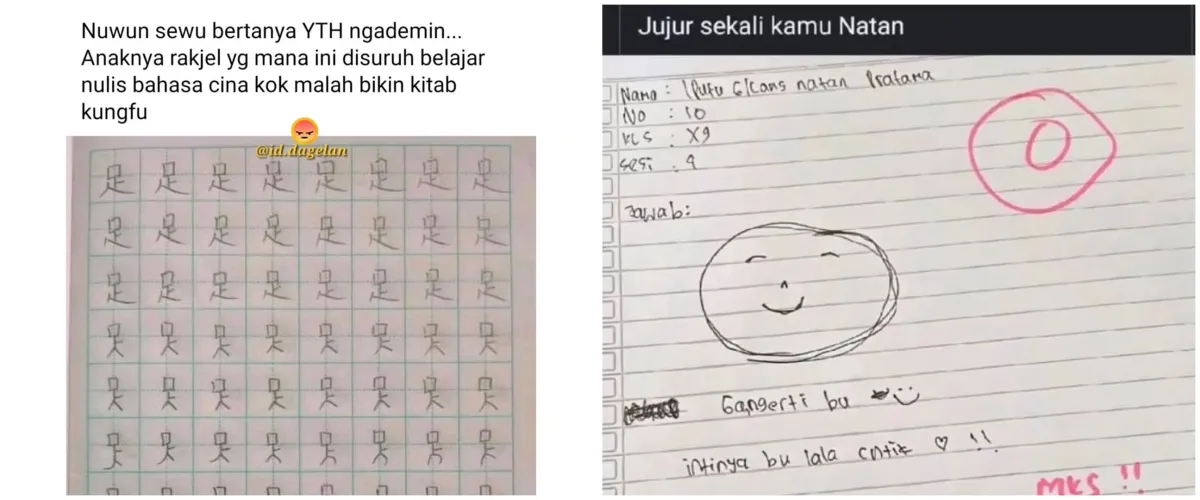 Nuwun sewu bertanya YTH ngademin...
Anaknya rakjel yg mana ini disuruh belajar
nulis bahasa cina kok malah bikin kitab
kungfu
@id.dagelan
足 足 足 足 足 足 足 足
足 足 足 足 足 足 足 足
足 足 足 足 足 足 足 足
Jujur sekali kamu Natan
Nama : Putu natan Pratama
No : 10
KLS : X9
sesi : 4
0
Jawab:
Gangerti bu
intinya bu lala cntik ♡ !!
MKS !!